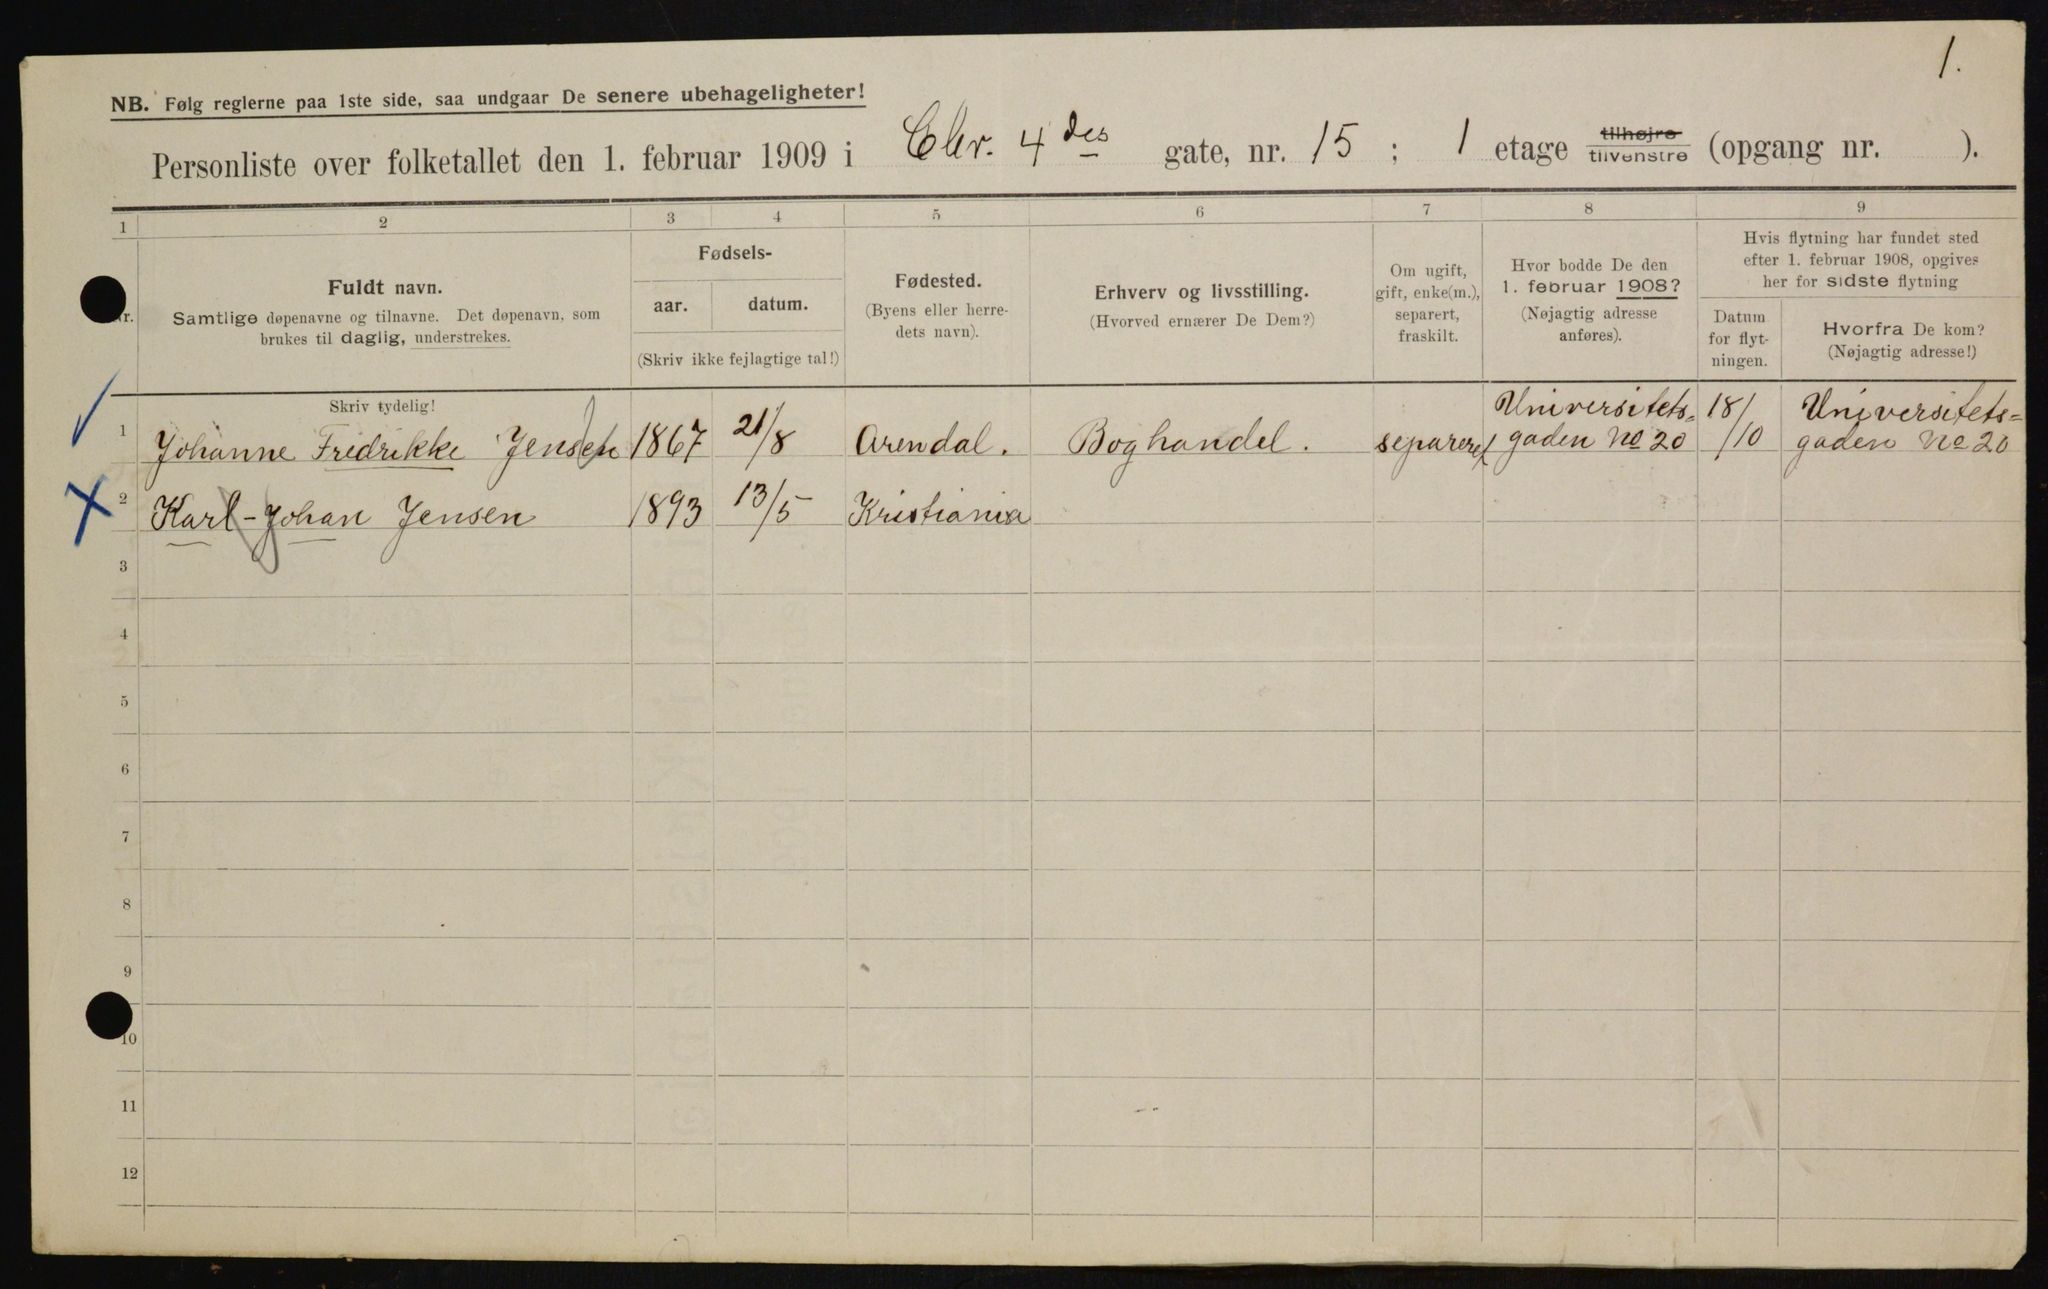 1.
NB. Følg reglerne paa 1ste side, saa undgaar De senere ubehageligheter!
Personliste over folketallet den 1. februar 1909 i Chr. 4des gate, nr. 15 ; 1 etage tilhøjre tilvenstre (opgang nr. ).
1 2 3 4 5 6 7 8 9
Nr.
Fuldt navn.
Samtlige døpenavne og tilnavne. Det døpenavn, som
brukes til daglig, understrekes.
Fødsels-
aar. datum.
(Skriv ikke fejlagtige tal!)
Fødested.
(Byens eller herre-
dets navn).
Erhverv og livsstilling.
(Hvorved ernærer De Dem?)
Om ugift,
gift, enke(m.),
separert,
fraskilt.
Hvor bodde De den
1. februar 1908?
(Nøjagtig adresse
anføres).
Hvis flytning har fundet sted
efter 1. februar 1908, opgives
her for sidste flytning
Datum
for flyt-
ningen.
Hvorfra De kom?
(Nøjagtig adresse!)
Skriv tydelig!
1 Johanne Fredrikke Jensen 1867 21/8 Arendal. Boghandel. separeret Universitets= gaden No 20 18/10 Universitets= gaden No 20
2 Karl-Johan Jensen 1893 13/5 Kristiania
3
4
5
6
7
8
9
10
11
12